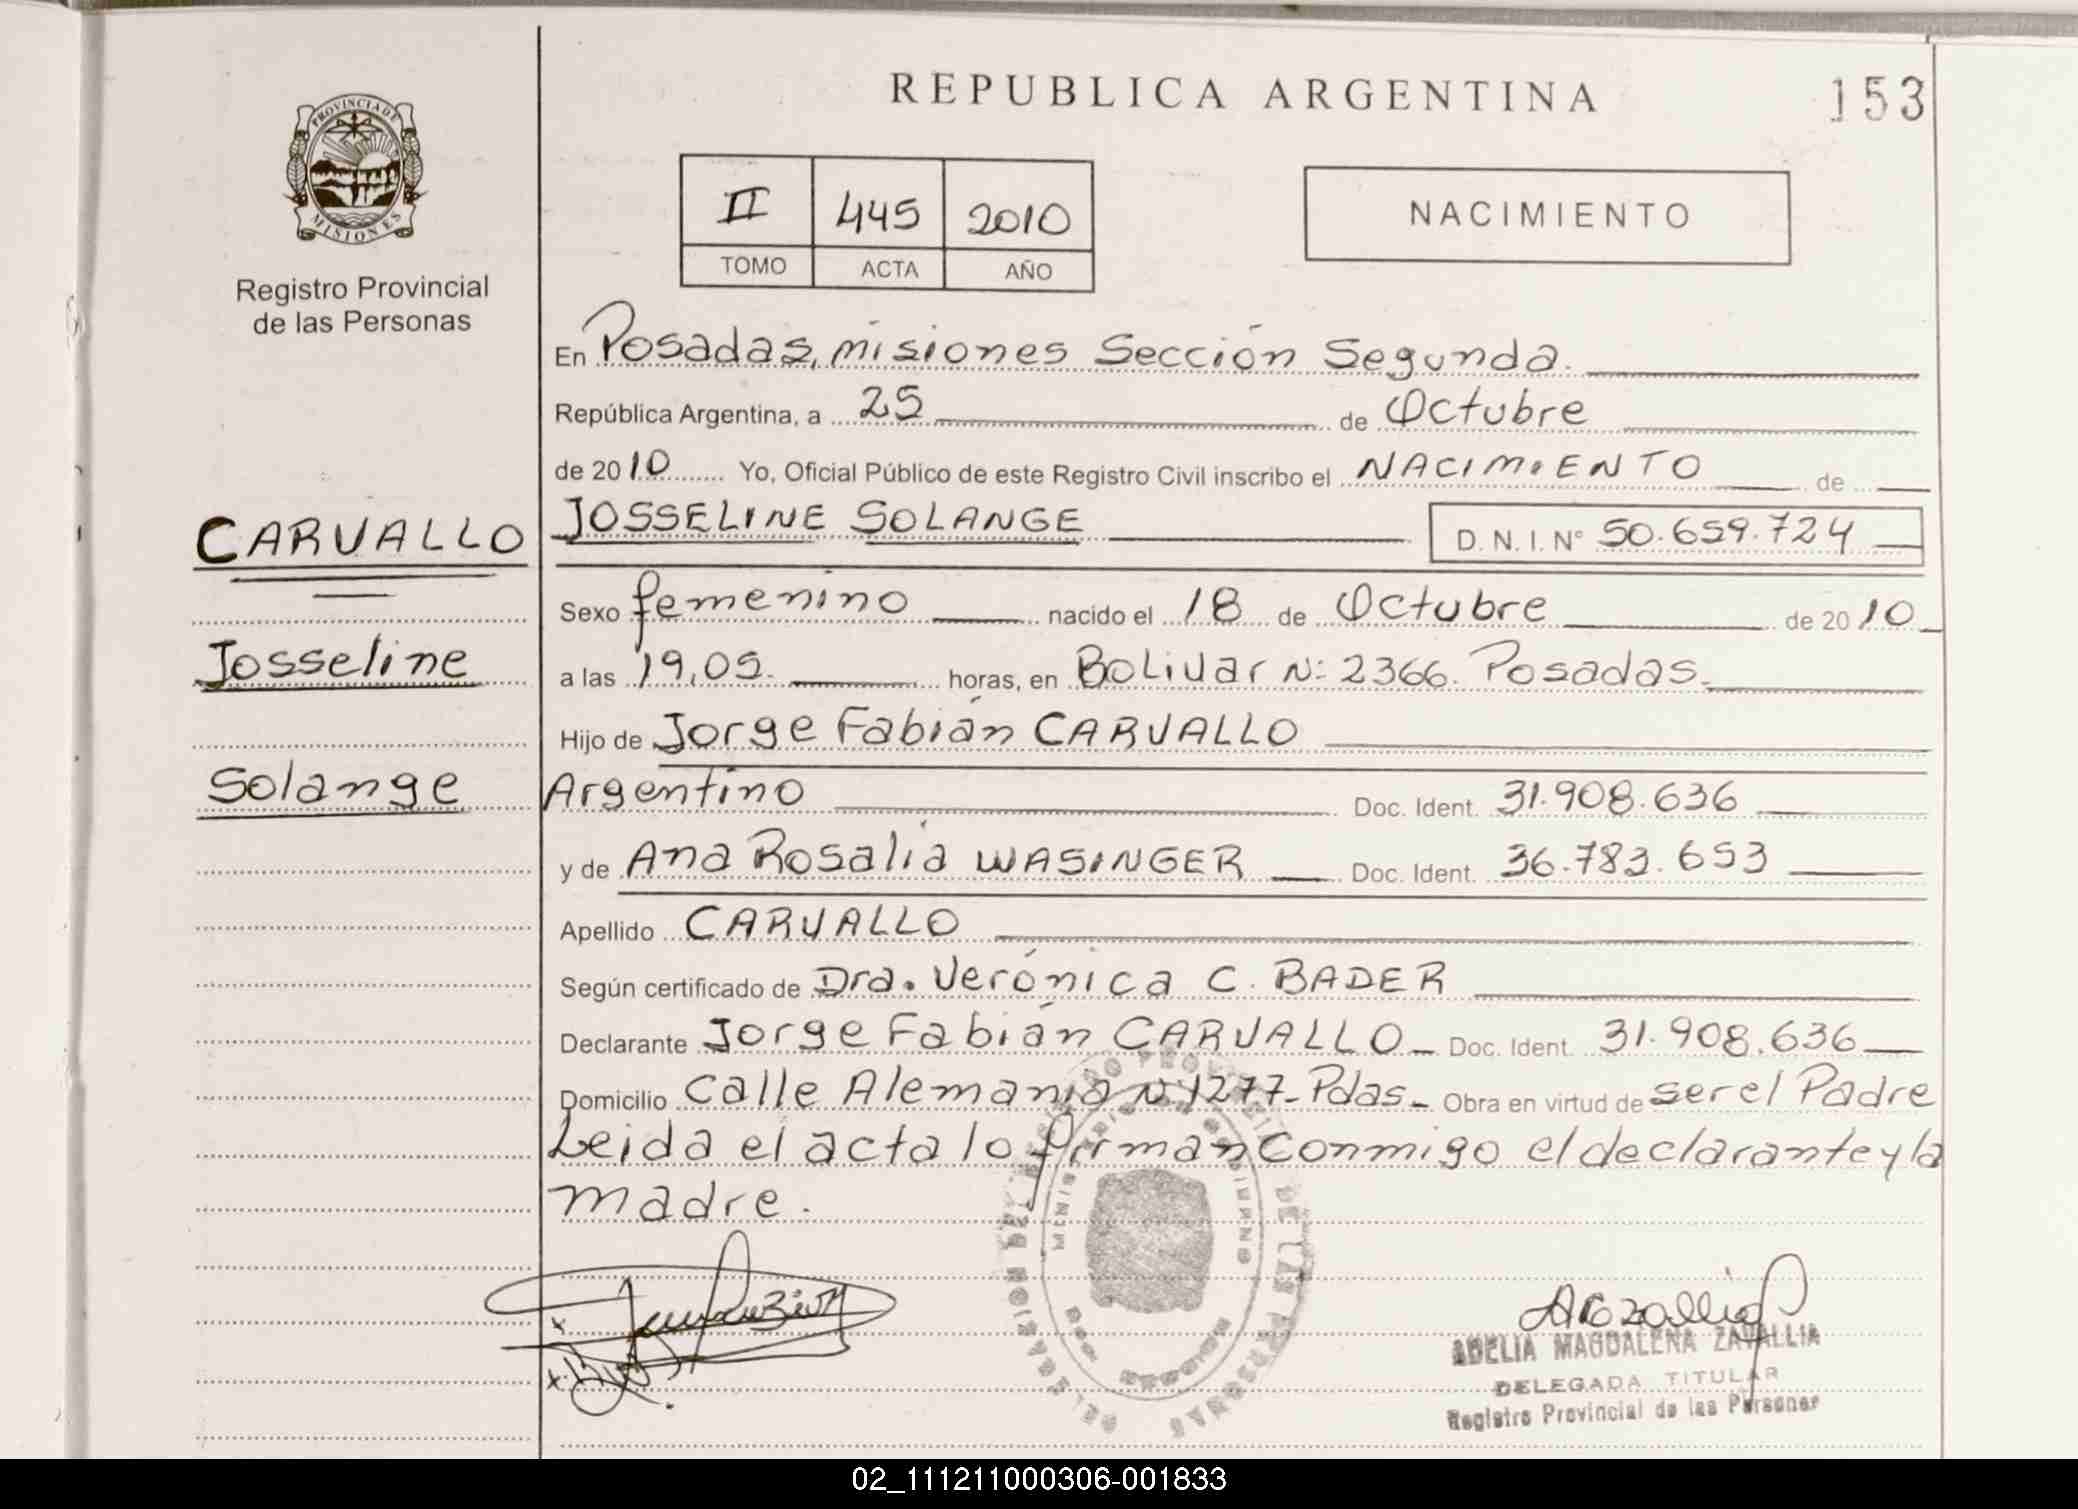 PROVINCIA DE
MISIONES
Registro Provincial
de las Personas
CARVALLO
Josseline
Solange
REPUBLICA ARGENTINA
153
II 445 2010
TOMO ACTA AÑO
NACIMIENTO
En Posadas, misiones Sección Segunda.
República Argentina, a 25 de Octubre
de 2010 Yo, Oficial Público de este Registro Civil inscribo el NACIMIENTO de
JOSSELINE SOLANGE D.N.I. N° 50.659.724
Sexo femenino nacido el 18 de Octubre de 2010
a las 19,05. horas, en Bolivar N: 2366. Posadas.
Hijo de Jorge Fabián CARVALLO
Argentino Doc. Ident. 31.908.636
y de Ana Rosalia WASINGER Doc. Ident. 36.783.653
Apellido CARVALLO
Según certificado de Dra. Verónica C. BADER
Declarante Jorge Fabián CARVALLO Doc. Ident. 31.908.636
Domicilio Calle Alemania N: 1277- Pdas- Obra en virtud de ser el Padre
Leida el acta lo firman conmigo el declarante y la
madre.
ADELIA MAGDALENA ZAVALLIA
DELEGADA TITULAR
Registro Provincial de las Personas
02_111211000306-001833